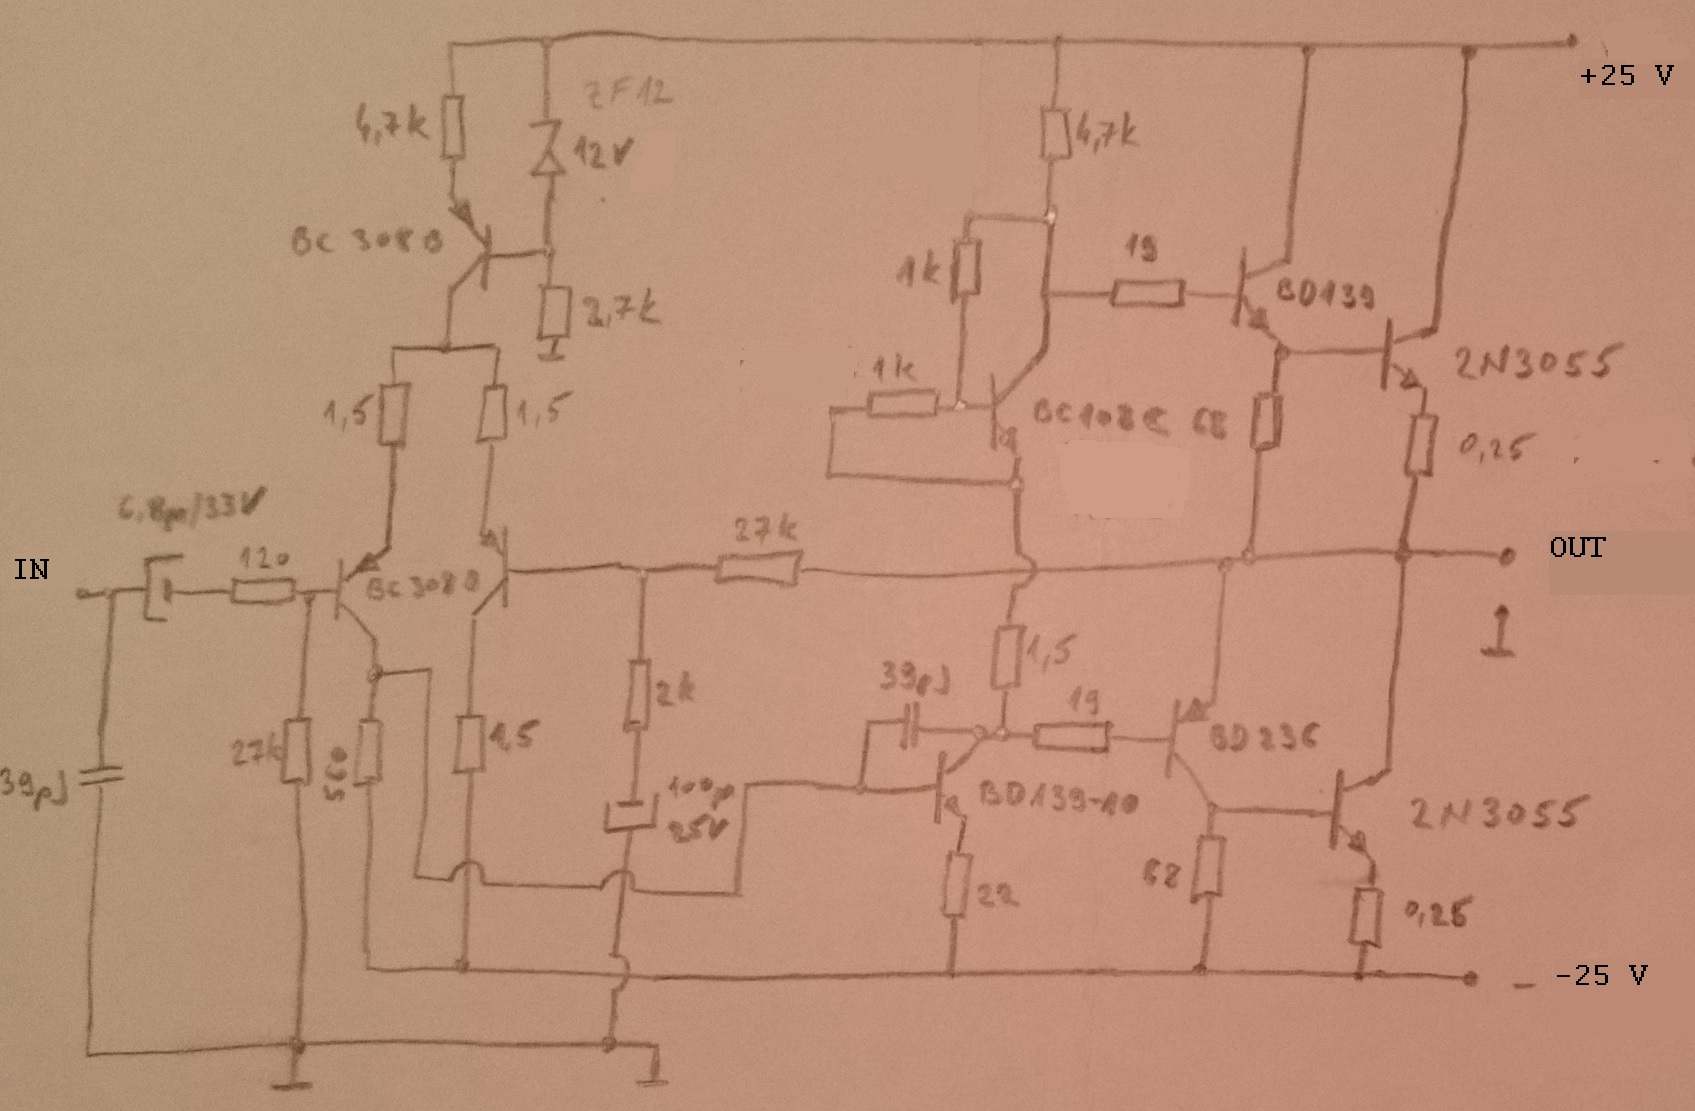 +25 V
ZF12
4,7k
12V
4,7k
BC 308B
2,7k
1k
19
BD139
1,5
1,5
1k
2N3055
0,25
6,8µ/33V
27k
IN
120
BC308B
OUT
1,5
39pJ
2k
19
BD236
27k
560
1,5
39pJ
100µ
25V
BD139-10
2N3055
22
68
0,25
- -25 V